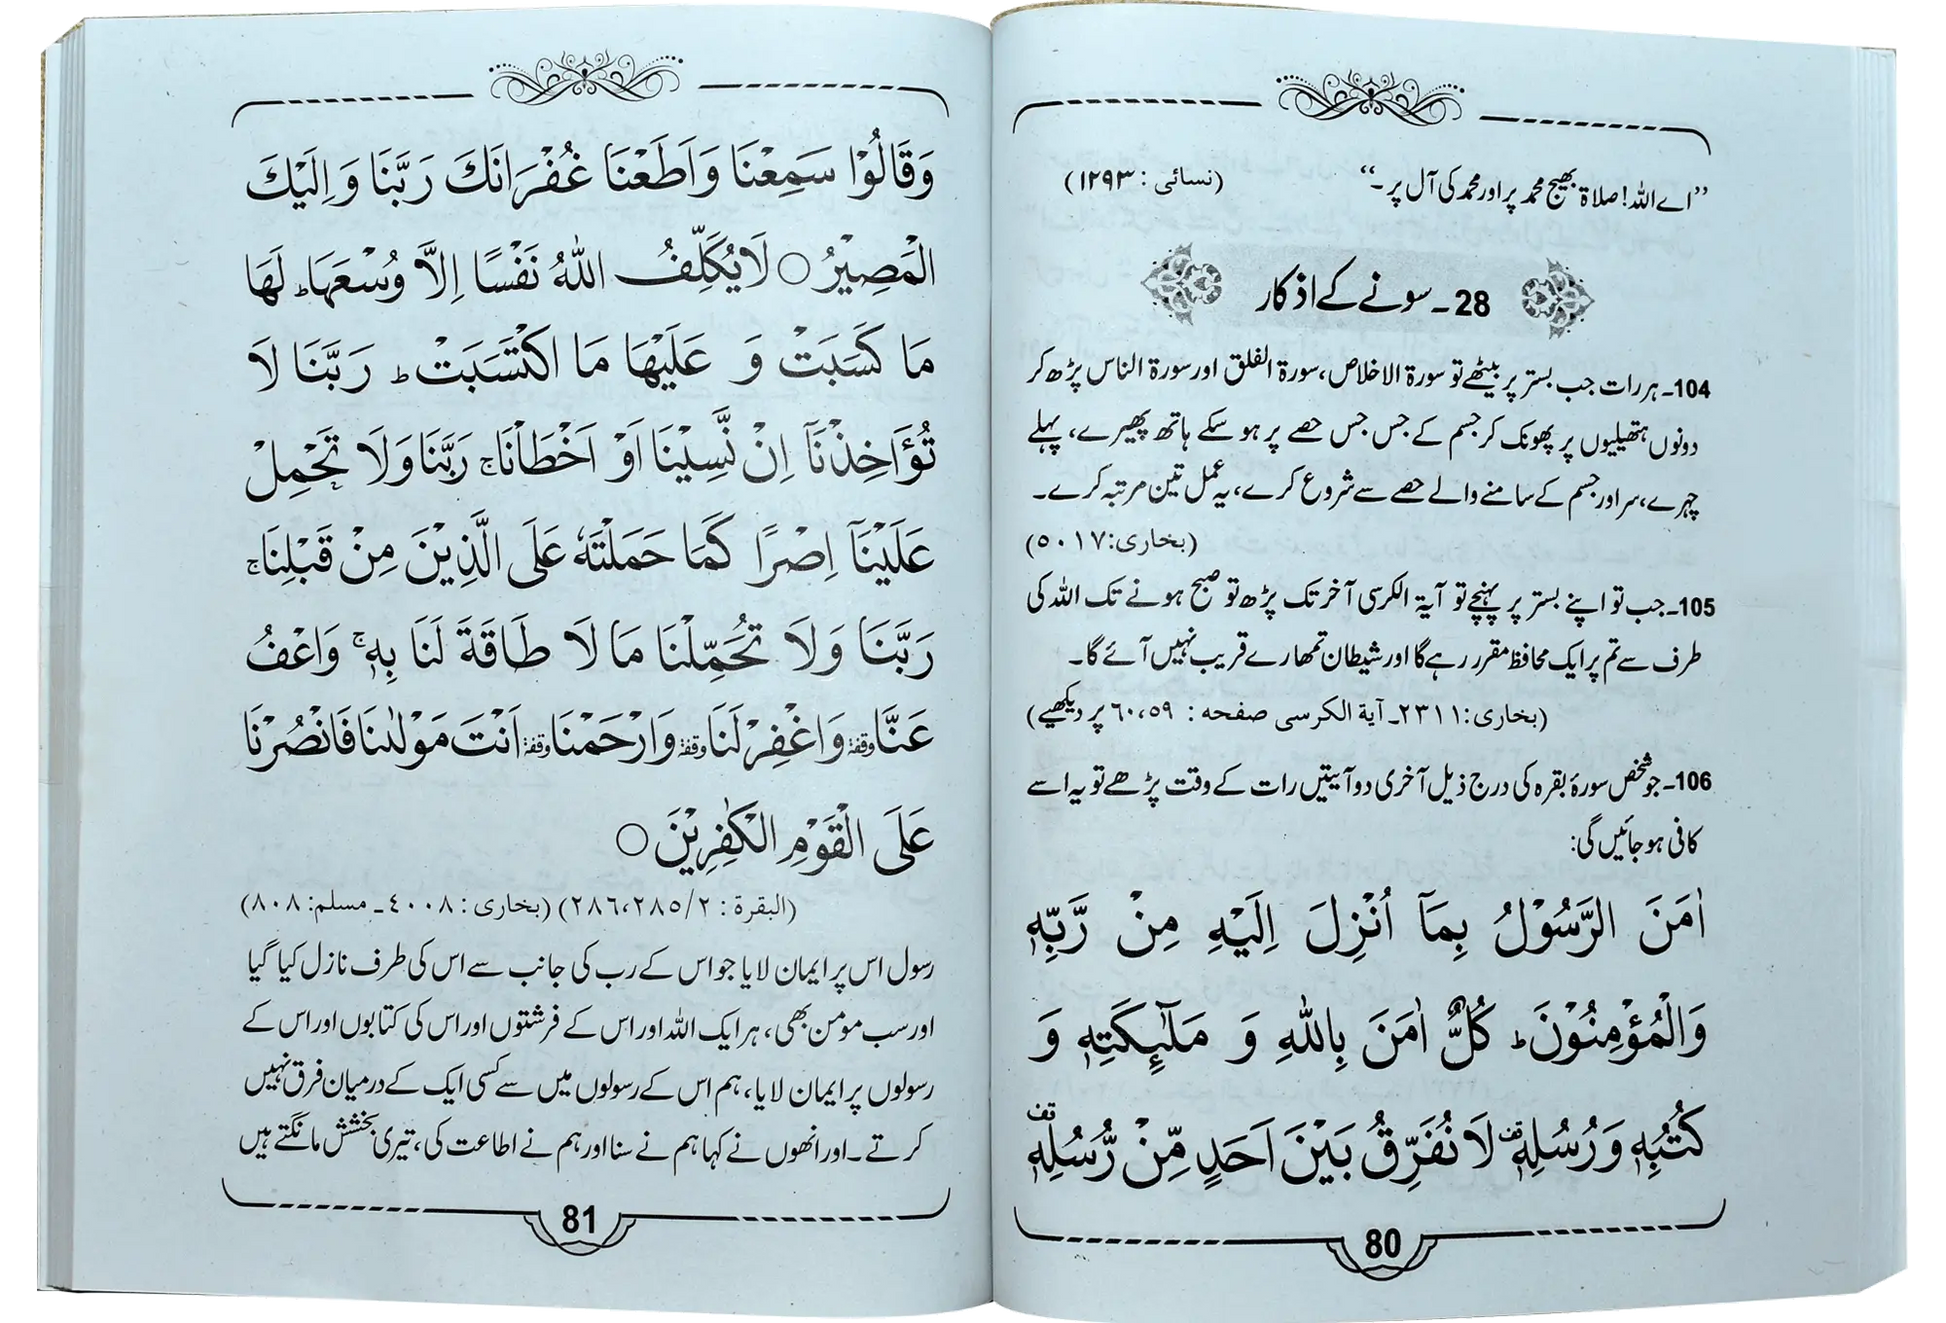 ”اے اللہ! صلاۃ بھیج محمد پر اور محمد کی آل پر۔“ (نسائی : ۱۲۹۳)
28۔ سونے کے اذکار
104۔ ہر رات جب بستر پر بیٹھے تو سورۃ الاخلاص، سورۃ الفلق اور سورۃ الناس پڑھ کر
دونوں ہتھیلیوں پر پھونک کر جسم کے جس جس حصے پر ہو سکے ہاتھ پھیرے، پہلے
چہرے، سر اور جسم کے سامنے والے حصے سے شروع کرے، یہ عمل تین مرتبہ کرے۔
(بخاری: ۵۰۱۷)
105۔ جب تو اپنے بستر پر پہنچے تو آیۃ الکرسی آخر تک پڑھ تو صبح ہونے تک اللہ کی
طرف سے تم پر ایک محافظ مقرر رہے گا اور شیطان تمھارے قریب نہیں آئے گا۔
(بخاری: ۲۳۱۱۔ آیة الکرسی صفحه : ۶۰،۵۹ پر دیکھیے)
106۔ جو شخص سورۂ بقرہ کی درج ذیل آخری دو آیتیں رات کے وقت پڑھے تو یہ اسے
کافی ہو جائیں گی:
اٰمَنَ الرَّسُوْلُ بِمَآ اُنْزِلَ اِلَيْهِ مِنْ رَّبِّهٖ
وَالْمُؤْمِنُوْنَ ؕ كُلٌّ اٰمَنَ بِاللّٰهِ وَ مَلٰٓىِٕكَتِهٖ وَ
كُتُبِهٖ وَرُسُلِهٖ قف لَا نُفَرِّقُ بَيْنَ اَحَدٍ مِّنْ رُّسُلِهٖ قف
80
وَقَالُوْا سَمِعْنَا وَاَطَعْنَا غُفْرَانَكَ رَبَّنَا وَاِلَيْكَ
الْمَصِيْرُ ○ لَا يُكَلِّفُ اللّٰهُ نَفْسًا اِلَّا وُسْعَهَا ؕ لَهَا
مَا كَسَبَتْ وَ عَلَيْهَا مَا اكْتَسَبَتْ ؕ رَبَّنَا لَا
تُؤَاخِذْنَآ اِنْ نَّسِيْنَا اَوْ اَخْطَاْنَا ۚ رَبَّنَا وَلَا تَحْمِلْ
عَلَيْنَآ اِصْرًا كَمَا حَمَلْتَهٗ عَلَى الَّذِيْنَ مِنْ قَبْلِنَا ۚ
رَبَّنَا وَلَا تُحَمِّلْنَا مَا لَا طَاقَةَ لَنَا بِهٖ ۚ وَاعْفُ
عَنَّا وقفة وَاغْفِرْ لَنَا وقفة وَارْحَمْنَا وقفة اَنْتَ مَوْلٰىنَا فَانْصُرْنَا
عَلَى الْقَوْمِ الْكٰفِرِيْنَ ○
(البقرة : ۲۸۶،۲۸۵/۲) (بخاری : ۴۰۰۸ ۔ مسلم: ۸۰۸)
رسول اس پر ایمان لایا جو اس کے رب کی جانب سے اس کی طرف نازل کیا گیا
اور سب مومن بھی، ہر ایک اللہ اور اس کے فرشتوں اور اس کی کتابوں اور اس کے
رسولوں پر ایمان لایا، ہم اس کے رسولوں میں سے کسی ایک کے درمیان فرق نہیں
کرتے۔ اور انھوں نے کہا ہم نے سنا اور ہم نے اطاعت کی، تیری بخشش مانگتے ہیں
81